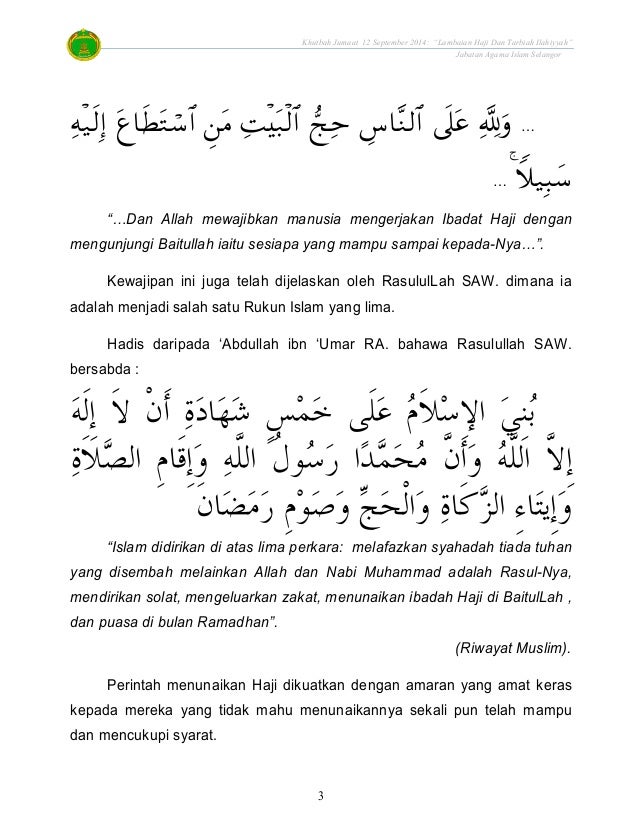 Khutbah Jumaat 12 September 2014: "Lambaian Haji Dan Tarbiah Ilahiyyah"
Jabatan Agama Islam Selangor
... وَلِلَّهِ عَلَى ٱلنَّاسِ حِجُّ ٱلْبَيْتِ مَنِ ٱسْتَطَاعَ إِلَيْهِ
سَبِيلًا ۚ ...
“…Dan Allah mewajibkan manusia mengerjakan Ibadat Haji dengan
mengunjungi Baitullah iaitu sesiapa yang mampu sampai kepada-Nya…”.
Kewajipan ini juga telah dijelaskan oleh RasululLah SAW. dimana ia
adalah menjadi salah satu Rukun Islam yang lima.
Hadis daripada ‘Abdullah ibn ‘Umar RA. bahawa Rasulullah SAW.
bersabda :
بُنِيَ الإِسْلَامُ عَلَى خَمْسٍ شَهَادَةِ أَنْ لَا إِلَهَ
إِلَّا اللَّهُ وَأَنَّ مُحَمَّدًا رَسُولُ اللَّهِ وَإِقَامِ الصَّلَاةِ
وَإِيتَاءِ الزَّكَاةِ وَالْحَجِّ وَصَوْمِ رَمَضَانَ
“Islam didirikan di atas lima perkara: melafazkan syahadah tiada tuhan
yang disembah melainkan Allah dan Nabi Muhammad adalah Rasul-Nya,
mendirikan solat, mengeluarkan zakat, menunaikan ibadah Haji di BaitulLah ,
dan puasa di bulan Ramadhan”.
(Riwayat Muslim).
Perintah menunaikan Haji dikuatkan dengan amaran yang amat keras
kepada mereka yang tidak mahu menunaikannya sekali pun telah mampu
dan mencukupi syarat.
3